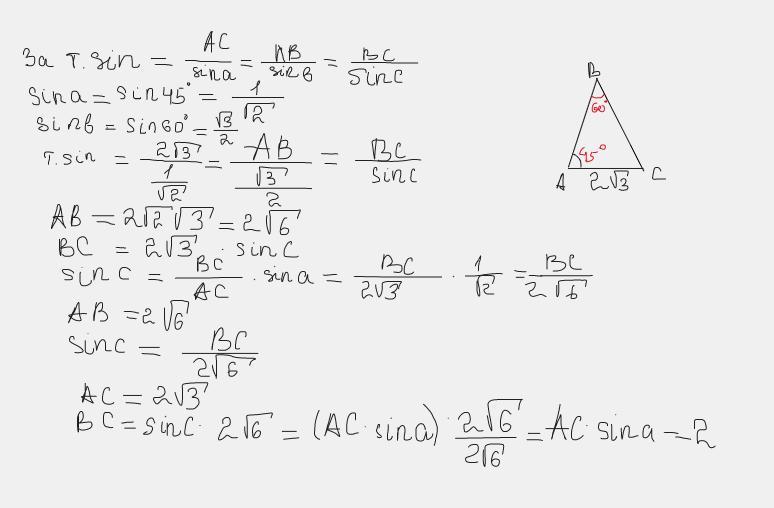 За т. sin = AC/sina = AB/sinb = BC/sinc
sina = sin45° = 1/√2
sinb = sin60° = √3/2
т. sin = 2√3/(1/√2) = AB/(√3/2) = BC/sinc
AB = 2√2√3 = 2√6
BC = 2√3 · sinc
sinc = BC/AC · sina = BC/2√3 · 1/√2 = BC/2√6
AB = 2√6
sinc = BC/2√6
AC = 2√3
BC = sinc · 2√6 = (AC · sina) · 2√6/2√6 = AC · sina - 2
B
60°
45°
A 2√3 C